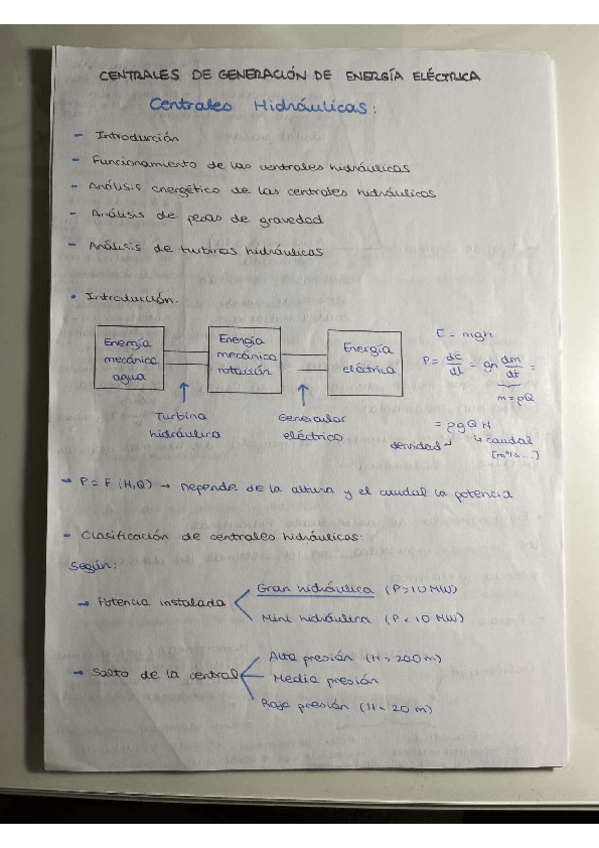 CENTRALES DE GENERACIÓN DE ENERGÍA ELÉCTRICA
Centrales Hidráulicas:
- Introducción
- Funcionamiento de las centrales hidráulicas
- Análisis energético de las centrales hidráulicas
- Análisis de presas de gravedad
- Análisis de turbinas hidráulicas
• Introducción.
Energía mecánica agua
Energía mecánica rotación
Energía eléctrica
Turbina hidráulica
Generador eléctrico
E = mgh
P = dE/dt = gh dm/dt =
ṁ = ρQ
= ρgQH
densidad
caudal
[m³/s...]
→ P = F (H,Q) → Depende de la altura y el caudal la potencia
- Clasificación de centrales hidráulicas:
Según:
→ Potencia instalada
Gran hidráulica (P>10 MW)
Mini hidráulica (P < 10 MW)
→ Salto de la central
Alta presión (H > 200 m)
Media presión
Baja presión (H < 20 m)